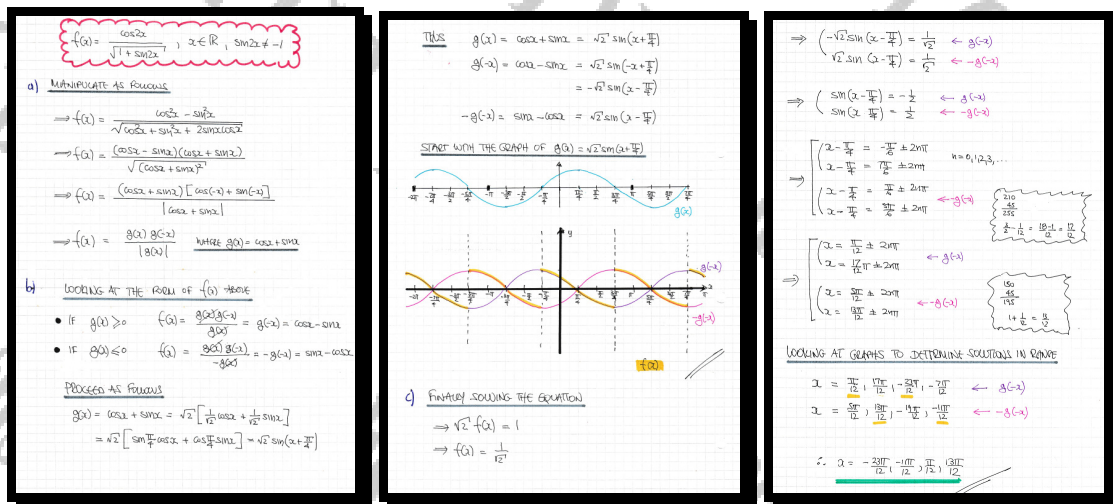 f(x) = cos2x / √(1 + sin2x) , x∈ℝ, sin2x ≠ -1
a) MANIPULATE AS FOLLOWS
⟹ f(x) = (cos²x - sin²x) / √(cos²x + sin²x + 2sinxcosx)
⟹ f(x) = (cosx - sinx)(cosx + sinx) / √(cosx + sinx)²
⟹ f(x) = (cosx + sinx)[cos(-x) + sin(-x)] / |cosx + sinx|
⟹ f(x) = g(x) g(-x) / |g(x)| WHERE g(x) = cosx + sinx
b) LOOKING AT THE FORM OF f(x) ABOVE
• IF g(x) ≥ 0 f(x) = g(x)g(-x) / g(x) = g(-x) = cosx - sinx
• IF g(x) ≤ 0 f(x) = g(x)g(-x) / -g(x) = -g(-x) = sinx - cosx
PROCEED AS FOLLOWS
g(x) = cosx + sinx = √2 [1/√2 cosx + 1/√2 sinx]
= √2 [sin π/4 cosx + cos π/4 sinx] = √2 sin(x + π/4)
THUS g(x) = cosx + sinx = √2 sin(x + π/4)
g(-x) = cosx - sinx = √2 sin(-x + π/4)
= -√2 sin(x - π/4)
-g(-x) = sinx - cosx = √2 sin(x - π/4)
START WITH THE GRAPH OF g(x) = √2 sin(x + π/4)
g(x)
y
g(-x)
x
-g(-x)
f(x)
c) FINALLY SOLVING THE EQUATION
⟹ √2 f(x) = 1
⟹ f(x) = 1/√2
⟹ -√2 sin(x - π/4) = 1/√2 ← g(-x)
√2 sin(x - π/4) = 1/√2 ← -g(-x)
⟹ sin(x - π/4) = -1/2 ← g(-x)
sin(x π/4) = 1/2 ← -g(-x)
x - π/4 = -π/6 ± 2nπ n = 0,1,2,3,...
x - π/4 = 7π/6 ± 2nπ
⟹ x - π/4 = π/6 ± 2nπ ← -g(-x)
x - π/4 = 5π/6 ± 2nπ
210
45
255
3/2 - 1/12 = 18-1/12 = 17/12
x = π/12 ± 2nπ ← g(-x)
x = 17/12 π ± 2nπ
⟹ x = 5π/12 ± 2nπ ← -g(-x)
x = 13π/12 ± 2nπ
150
45
195
1 + 1/12 = 13/12
LOOKING AT GRAPHS TO DETERMINE SOLUTIONS IN RANGE
x = π/12, 17π/12, -23π/12, -7π/12 ← g(-x)
x = 5π/12, 13π/12, -19π/12, -11π/12 ← -g(-x)
∴ x = -23π/12, -11π/12, π/12, 13π/12